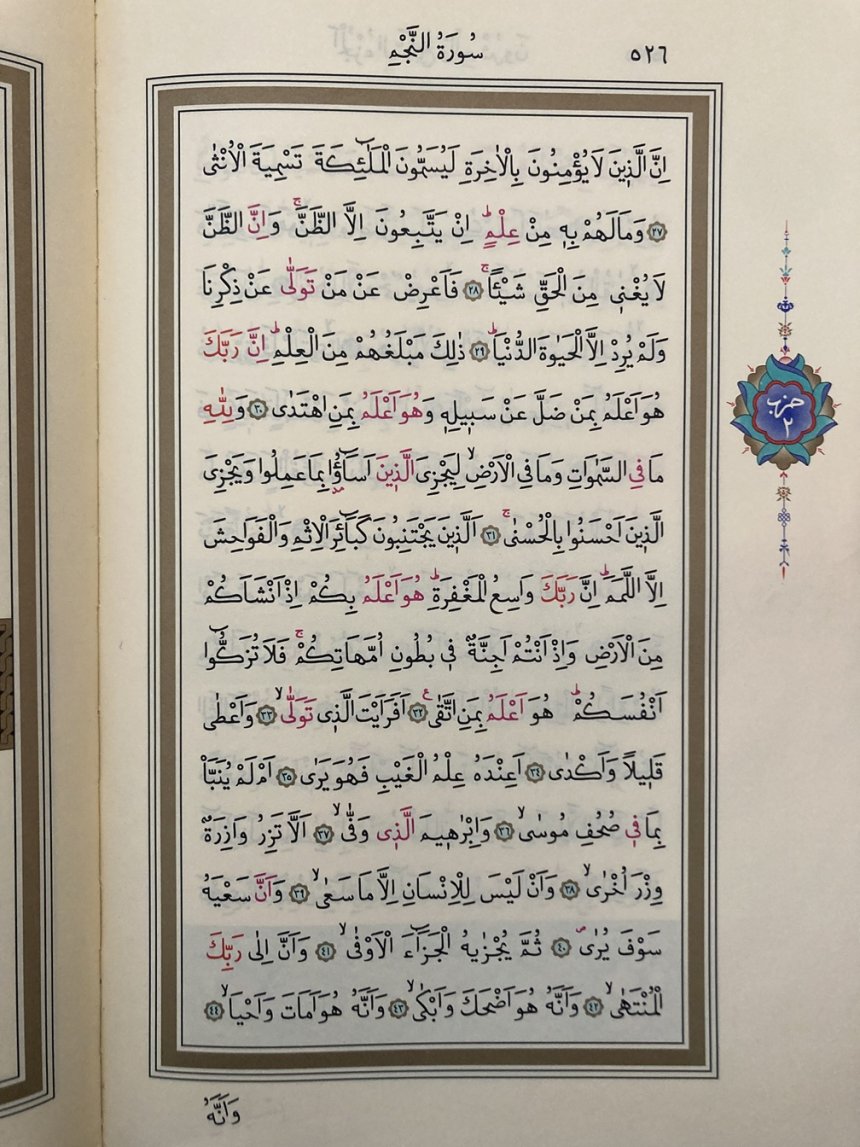 ٥٢٦
سُورَةُ النَّجْمِ
اِنَّ الَّذ۪ينَ لَا يُؤْمِنُونَ بِالْاٰخِرَةِ لَيُسَمُّونَ الْمَلٰٓئِكَةَ تَسْمِيَةَ الْاُنْثٰى
﴿٢٧﴾ وَمَا لَهُمْ بِه۪ مِنْ عِلْمٍۜ اِنْ يَتَّبِعُونَ اِلَّا الظَّنَّۚ وَاِنَّ الظَّنَّ
لَا يُغْن۪ي مِنَ الْحَقِّ شَيْـًٔاۚ ﴿٢٨﴾ فَاَعْرِضْ عَنْ مَنْ تَوَلّٰى عَنْ ذِكْرِنَا
وَلَمْ يُرِدْ اِلَّا الْحَيٰوةَ الدُّنْيَاۜ ﴿٢٩﴾ ذٰلِكَ مَبْلَغُهُمْ مِنَ الْعِلْمِۜ اِنَّ رَبَّكَ
هُوَ اَعْلَمُ بِمَنْ ضَلَّ عَنْ سَب۪يلِه۪ وَهُوَ اَعْلَمُ بِمَنِ اهْتَدٰى ﴿٣٠﴾ وَلِلّٰهِ
مَا فِي السَّمٰوَاتِ وَمَا فِي الْاَرْضِۙ لِيَجْزِيَ الَّذ۪ينَ اَسَٓاؤُ۫ا بِمَا عَمِلُوا وَيَجْزِيَ
الَّذ۪ينَ اَحْسَنُوا بِالْحُسْنٰىۚ ﴿٣١﴾ اَلَّذ۪ينَ يَجْتَنِبُونَ كَبَٓائِرَ الْاِثْمِ وَالْفَوَاحِشَ
اِلَّا اللَّمَمَۜ اِنَّ رَبَّكَ وَاسِعُ الْمَغْفِرَةِۜ هُوَ اَعْلَمُ بِكُمْ اِذْ اَنْشَاَكُمْ
مِنَ الْاَرْضِ وَاِذْ اَنْتُمْ اَجِنَّةٌ ف۪ي بُطُونِ اُمَّهَاتِكُمْۚ فَلَا تُزَكُّٓوا
اَنْفُسَكُمْۜ هُوَ اَعْلَمُ بِمَنِ اتَّقٰىۚ ﴿٣٢﴾ اَفَرَاَيْتَ الَّذ۪ي تَوَلّٰىۙ ﴿٣٣﴾ وَاَعْطٰى
قَل۪يلًا وَاَكْدٰى ﴿٣٤﴾ اَعِنْدَهُ عِلْمُ الْغَيْبِ فَهُوَ يَرٰى ﴿٣٥﴾ اَمْ لَمْ يُنَبَّأْ
بِمَا ف۪ي صُحُفِ مُوسٰىۙ ﴿٣٦﴾ وَاِبْرٰه۪يمَ الَّذ۪ي وَفّٰىۙ ﴿٣٧﴾ اَلَّا تَزِرُ وَازِرَةٌ
وِزْرَ اُخْرٰىۙ ﴿٣٨﴾ وَاَنْ لَيْسَ لِلْاِنْسَانِ اِلَّا مَا سَعٰىۙ ﴿٣٩﴾ وَاَنَّ سَعْيَهُ
سَوْفَ يُرٰىۖ ﴿٤٠﴾ ثُمَّ يُجْزٰيهُ الْجَزَٓاءَ الْاَوْفٰىۙ ﴿٤١﴾ وَاَنَّ اِلٰى رَبِّكَ
الْمُنْتَهٰىۙ ﴿٤٢﴾ وَاَنَّهُ هُوَ اَضْحَكَ وَاَبْكٰىۙ ﴿٤٣﴾ وَاَنَّهُ هُوَ اَمَاتَ وَاَحْيَاۙ ﴿٤٤﴾
وَاَنَّهُ
حزب
٢